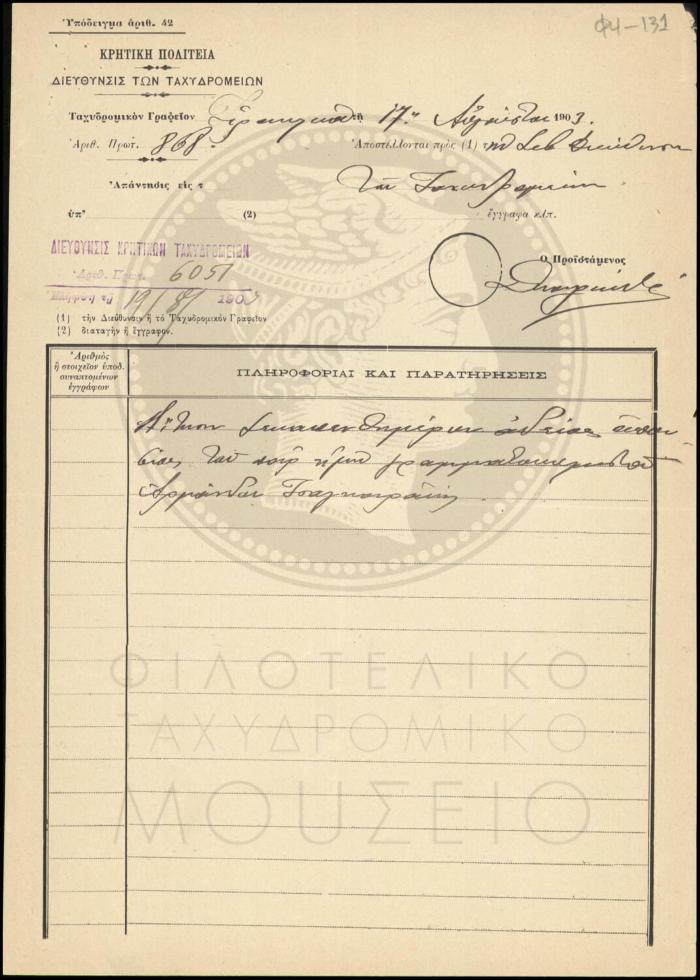 Ὑπόδειγμα ἀριθ. 42
Φ4-131
ΚΡΗΤΙΚΗ ΠΟΛΙΤΕΙΑ
ΔΙΕΥΘΥΝΣΙΣ ΤΩΝ ΤΑΧΥΔΡΟΜΕΙΩΝ
Ταχυδρομικὸν Γραφεῖον τῇ 17ῃ Αὐγούστου 1903.
Ἀριθ. Πρωτ. 868. Ἀποστέλλονται πρὸς (1) τὴν Σεβ Διεύθυνσιν
Ἀπάντησις εἰς τ τῶν Ταχυδρομείων
ὑπ' (2) ἔγγραφα κλπ.
ΔΙΕΥΘΥΝΣΙΣ ΚΡΗΤΙΚΩΝ ΤΑΧΥΔΡΟΜΕΙΩΝ
Ἀριθ. Πρωτ. 6051
Ὁ Προϊστάμενος
Ἐλήφθη τῇ 19/8/ 1903
(1) τὴν Διεύθυνσιν ἢ τὸ Ταχυδρομικὸν Γραφεῖον
(2) διαταγὴν ἢ ἔγγραφον.
Ἀριθμὸς
ἢ στοιχεῖον ὑποδ.
συναπτομένων
ἐγγράφων
ΠΛΗΡΟΦΟΡΙΑΙ ΚΑΙ ΠΑΡΑΤΗΡΗΣΕΙΣ
δεκαπενθημέρου ἀδείας ἀπου
σίας τοῦ παρ' ἡμῖν
ΦΙΛΟΤΕΛΙΚΟ
ΤΑΧΥΔΡΟΜΙΚΟ
ΜΟΥΣΕΙΟ